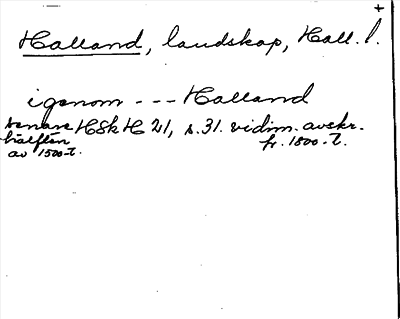 +
Halland, landskap, Hall. l.
igenom --- Halland
senare hälften av 1500-t. HSH 21, s. 31. vidim. avskr. fr. 1800-t.